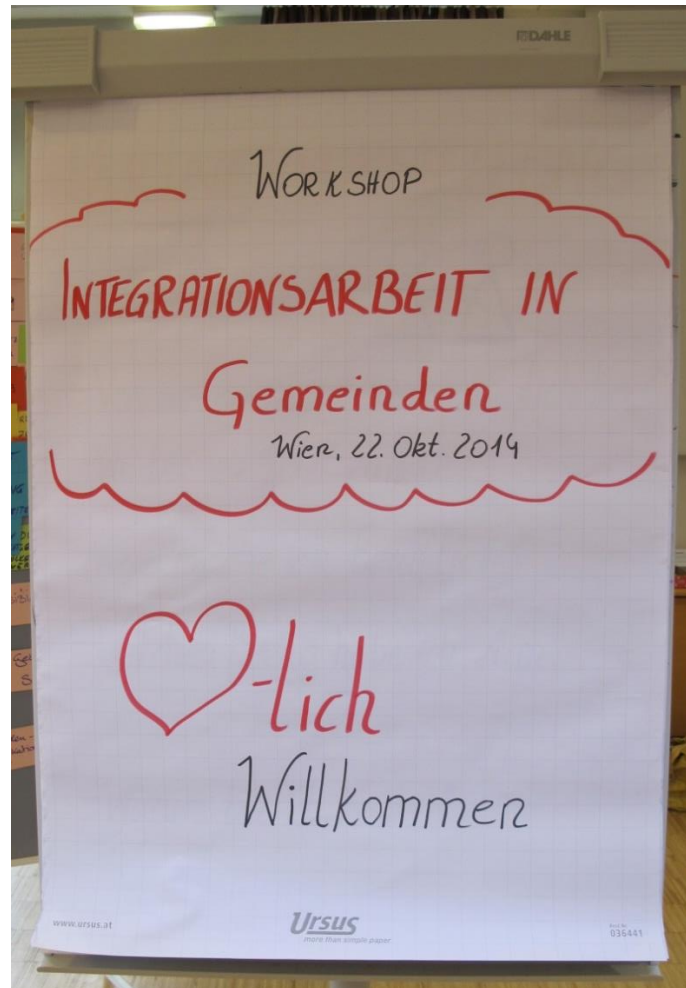 DAHLE
WORKSHOP
INTEGRATIONSARBEIT IN
Gemeinden
Wien, 22. Okt. 2014
-lich
Willkommen
www.ursus.at
Ursus
more than simple paper
036441